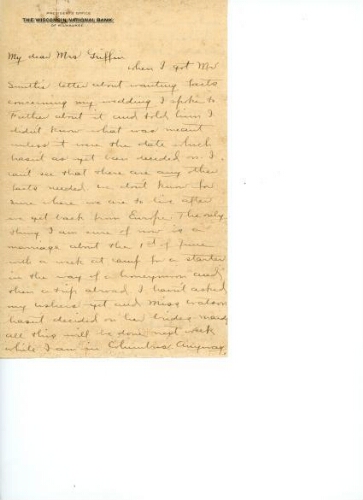 PRESIDENT'S OFFICE
THE WISCONSIN NATIONAL BANK
OF MILWAUKEE
My dear Mrs Griffin
When I got Mr
Smith's letter about wanting facts
concerning my wedding I spoke to
Father about it and told him I
didn't know what was meant
unless it were the date which
hasn't as yet been decided on. I
can't see that there are any other
facts needed. We don't know for
sure where we are to live after
we get back from Europe. The only
thing I am sure of now is a
marriage about the 1st of June
with a week at camp for a starter
in the way of a honeymoon and
then a trip abroad. I haven't asked
my ushers yet and Miss Watson
hasn't decided on her brides maids
all this will be done next week
while I am in Columbus. Anyway